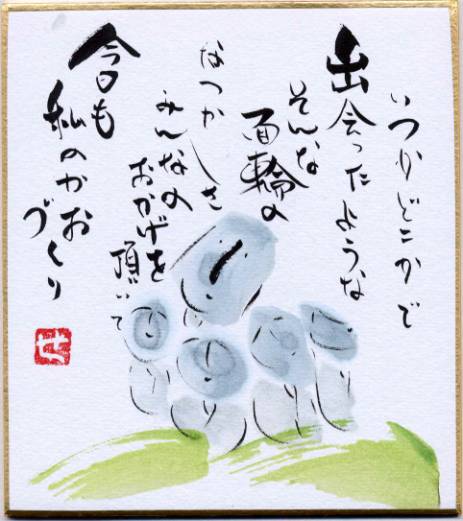 いつかどこかで
出会ったような
そんな
面輪の
なつかしさ
みんなの
おかげを
頂いて
今日も
私のかお
づくり
せ